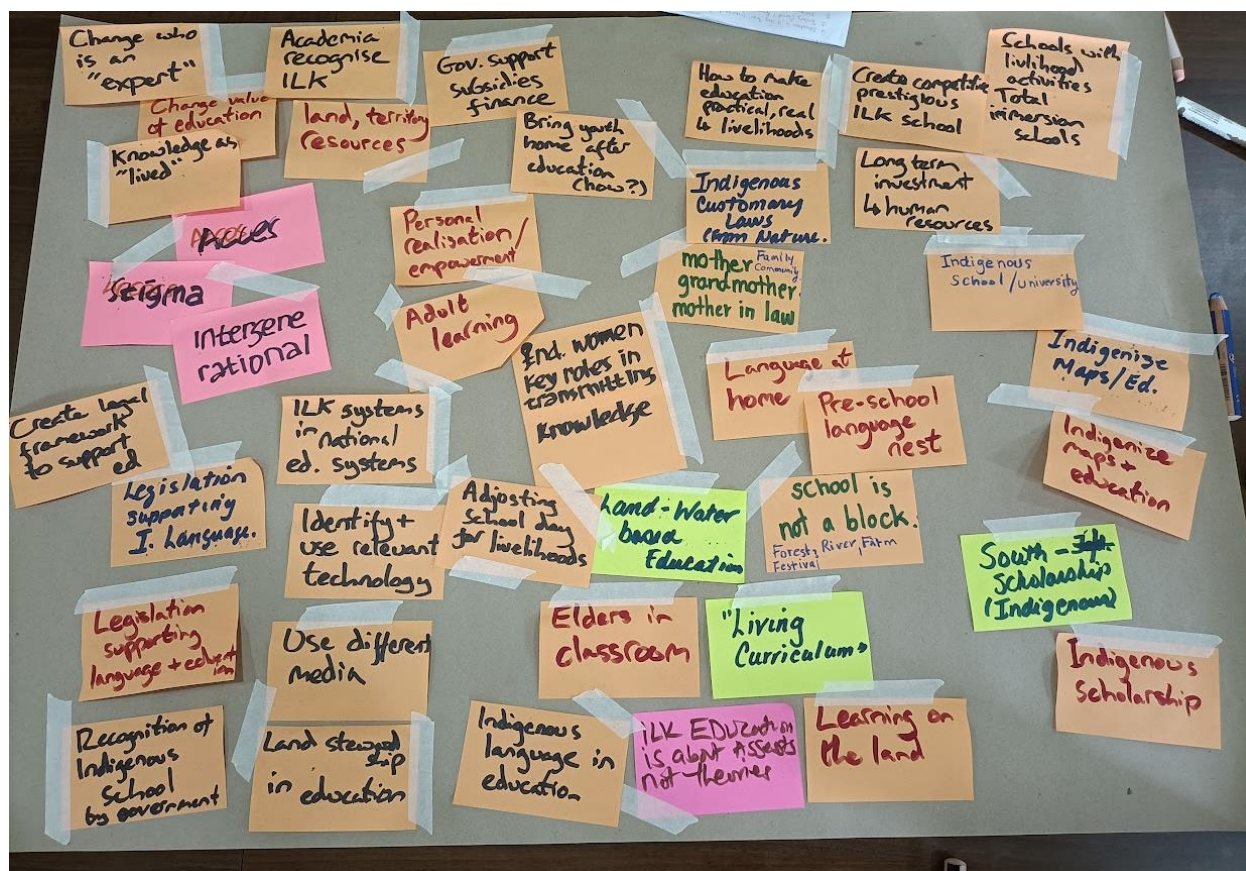 Change who
is an
"expert"
Academia
recognise
ILK
Gov. support
subsidies
finance
How to make
education
practical, real
↳ livelihoods
Create competitive
prestigious
ILK school
Schools with
livlihood
activities
Total
immersion
schools
Change value
of education
land, territory
resources
Bring youth
home after
education
(how?)
Knowledge as
"lived"
Indigenous
Customary
Laws
(from Nature.
Long term
investment
↳ human
resources
Personal
realisation/
empowerment
mother Family
Community
grandmother.
mother in law
Indigenous
School/university
Stigma
Intergene
rational
Adult
learning
Ind. women
key roles in
transmitting
knowledge
Language at
home
Pre-school
language
nest
Indigenize
Maps/Ed.
Create legal
framework
to support
ed
ILK systems
in national
ed. systems
Indigenize
maps +
education
Legislation
supporting
I. Language.
Identify +
use relevant
technology
Adjusting
school day
for livelihoods
Land-Water
based
Education
school is
not a block.
Forests, River, Farm
Festival
South -
Scholarship
(Indigenous)
Legislation
supporting
language + educat
ion
Use different
media
Elders in
classroom
"Living
Curriculum"
Indigenous
Scholarship
Recognition of
Indigenous
school
by government
Land steward
ship
in education
Indigenous
language in
education
iLK EDucation
is about Assests
not theories
Learning on
the land